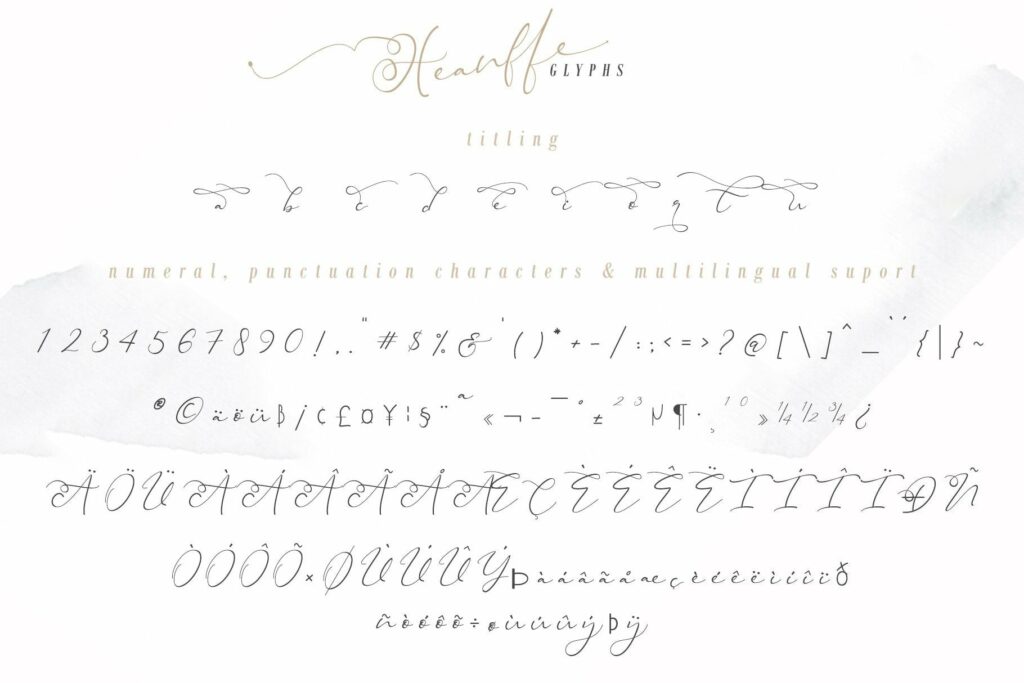 Heanffe GLYPHS
titling
a b c d e i o q t u
numeral, punctuation characters & multilingual suport
1 2 3 4 5 6 7 8 9 0 ! . , " # $ % & ' ( ) * + - / : ; < = > ? @ [ \ ] ^ _ ` { | } ~
® © ä ö ü ß ¡ ¢ £ ¤ ¥ ¦ § ¨ ~ « ¬ - ¯ ° ± ² ³ µ ¶ · ¸ ¹ º » ¼ ½ ¾ ¿
Ä Ö Ü À Á Â Ã Å Æ Ç È É Ê Ë Ì Í Î Ï Ð Ñ
Ò Ó Ô Õ × Ø Ù Ú Û Ý Þ à á â ã å æ ç è é ê ë ì í î ï ð
ñ ò ó ô õ ÷ ø ù ú û ý þ ÿ